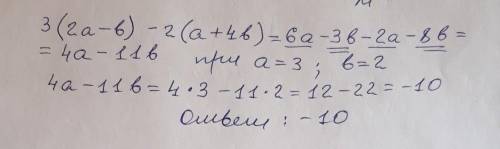 3(2a-в) -2(a+4в)=6a-3в-2a-8в=
=4a-11в при a=3; в=2
4a-11в=4*3-11*2=12-22=-10
Ответ: -10